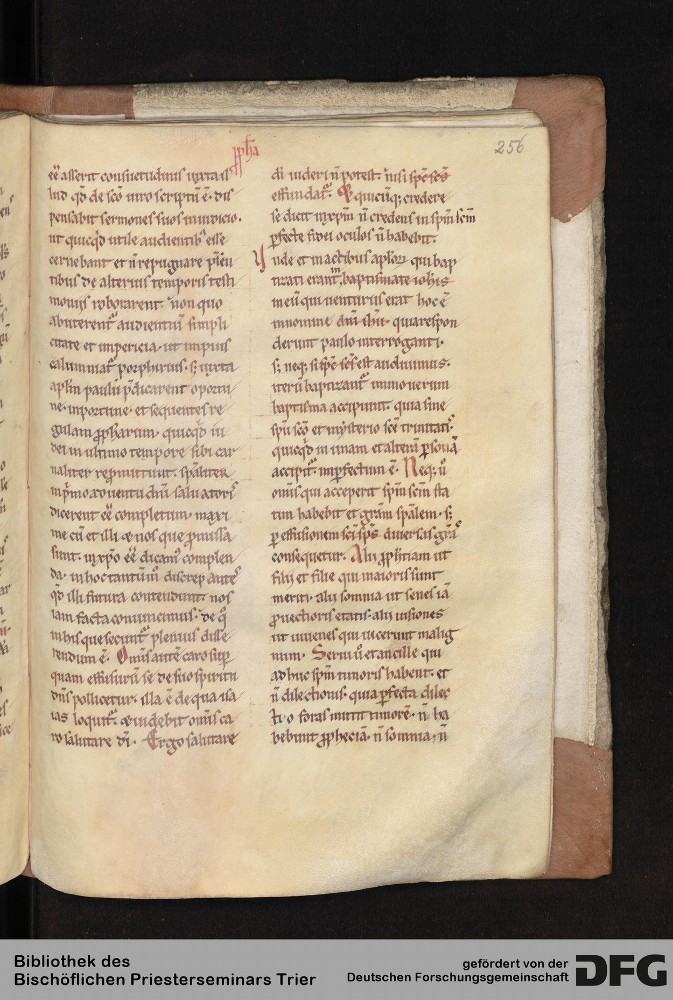 ꝓph̄a
256
eē asserit consuetudinis iuxta il
lud qd̄ de scō uiro scriptū ē· dis
pensabit sermones suos in iudicio·
ut quicqd̄ utile audientibꝰ esse
cernebant et n̄ repugnare p̄sen
tibus de alterius temporis testi
moniis roborarent· non quo
abuterentᷣ audientiū simpli
citate et impericia· ut impius
caluminiatᷣ porphirius· sꝫ iuxta
aplm̄ paulū p̄dicarent oportu
ne· inportune· et sequentes re
gulam ꝓph̄arum· quicqd̄ iu
dei in ultimo tempore sibi car
naliter repromittunt· spāliter
in p̄mo aduentu dn̄i saluatorisͥ
dicerent eē completum· maxi
me cū et illi et nos que promissa
sunt· in xp̄o eē dicamꝰ complen
da· in hoc tantūm̊ discrepanteᷤ
qd̄ illi futura contendunt· nos
iam facta conuincimus· de qͥ
in his que secuntᷣ plenius disse
rendum ē· Om̄is autē caro sup̄
quam effusurū se de suo spiritu
dn̄s pollicetur· illa ē de qua isa
ias loquitᷣ· et uidebit om̄is ca
ro salutare dī· Ergo salutare
dī uideri n̄ potest· nisi spc̄ sc̄s
effundatᷣ· Et quicūqꝫ credere
se dicit in xp̄m n̄ credens in spm̄ scm̄
ꝑfecte fidei oculos n̄ habebit·
Vnde et in actibus aplor̄ qui bap
tizati erant baptismate ioh̄is
in eū qui uenturus erat hoc ē
in nomine dn̄i ih̄u· quia respon
derunt paulo interroganti·
sꝫ neqꝫ si spc̄ sc̄s est audiuimus·
iterū baptizantᷣ immo uerum
baptisma accipiunt· quia sine
spū scō et mysterio scē trinitatiᷤ
quicqd̄ in unam et alterā ꝑsonā
accipitᷣ· inꝑfectum ē· Neqꝫ ū
om̄is qui acceperit spm̄ scm̄ sta
tim habebit et grām spālem· sꝫ
ꝑ effusionem sc̄i sp̄s diuersas grāᷤ
consequetur· Alii ꝓph̄tiam ut
filii et filie qui maioris sunt
meriti· alii somnia ut senes iā
prouectioris etatis· alii uisiones
ut iuuenes qui uicerunt malig
num· Serui ū et ancille qui
adhuc spm̄ timoris habent· et
n̄ dilectionis· quia ꝑfecta dilec
tio foras mittit timorē· n̄ ha
bebunt ꝓpheciā· n̄ somnia· n̄
Bibliothek des
Bischöflichen Priesterseminars Trier
gefördert von der
Deutschen Forschungsgemeinschaft
DFG